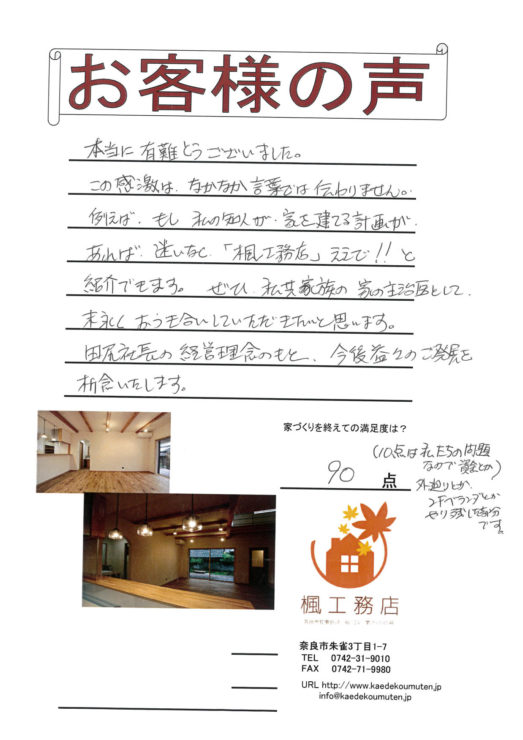 お客様の声
本当に有難とうございました。
この感激は、なかなか言葉では伝わりません。
例えば、もし私の知人が、家を建てる計画が、
あれば、迷いなく、「楓工務店」ええで!!と
紹介できます。ぜひ、私共家族の家の主治医として、
末永くおつき合いしていただきたいと思います。
田尻社長の経営理念のもと、今後益々のご発展を
祈念いたします。
家づくりを終えての満足度は?
90 点
(10点は私たちの問題
なので 資金とか)
外廻りとか、
2Fベランダとか
やり残した部分
です。
楓工務店
奈良市朱雀3丁目1-7
TEL 0742-31-9010
FAX 0742-71-9980
URL http://www.kaedekoumuten.jp
info@kaedekoumuten.jp